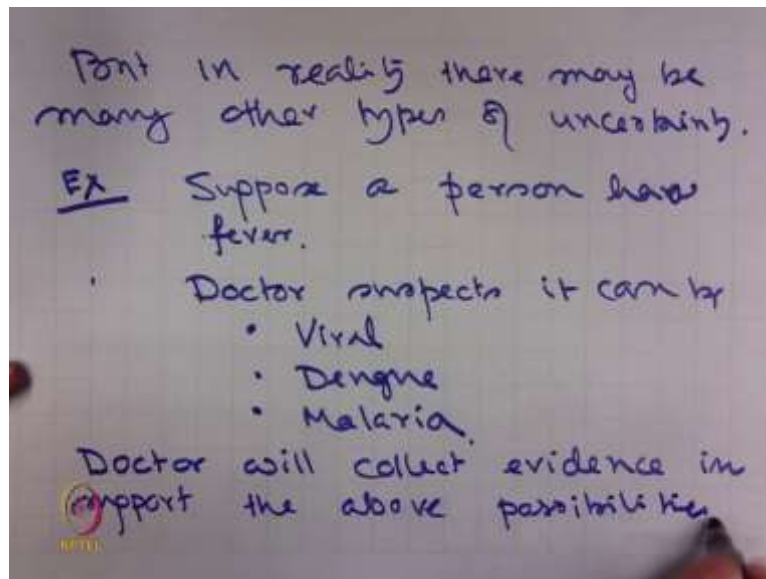 But in reality there may be
many other types of uncertainty.
Ex Suppose a person have
fever.
Doctor suspects it can be
• Viral
• Dengue
• Malaria.
Doctor will collect evidence in
support the above possibilities
NPTEL